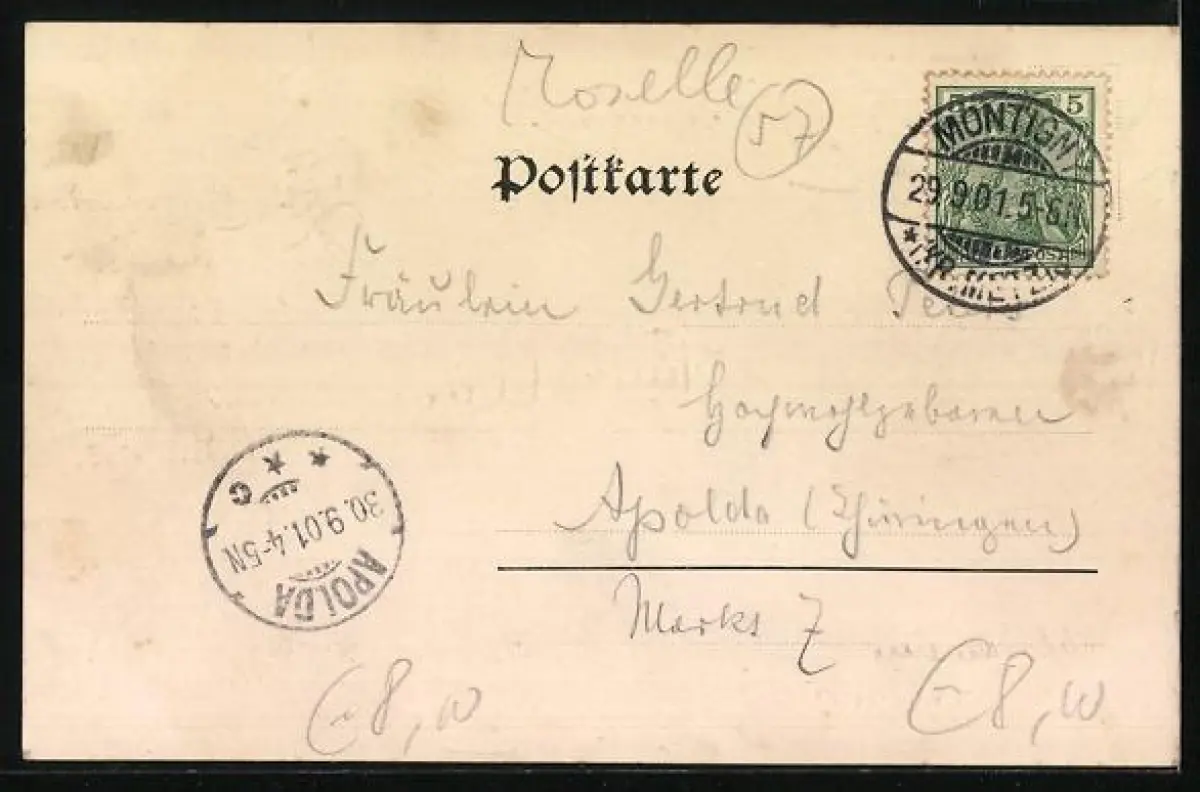 Moselle 57
Postkarte
5
MONTIGN
29.9.01. 5-6N
* (KR. METZ)
Fräulein Gertrud
Hochwohlgeboren
Apolda (Thüringen)
Markt 7
C * *
30.9.01. 4-5N
APOLDA
8,00
8,00